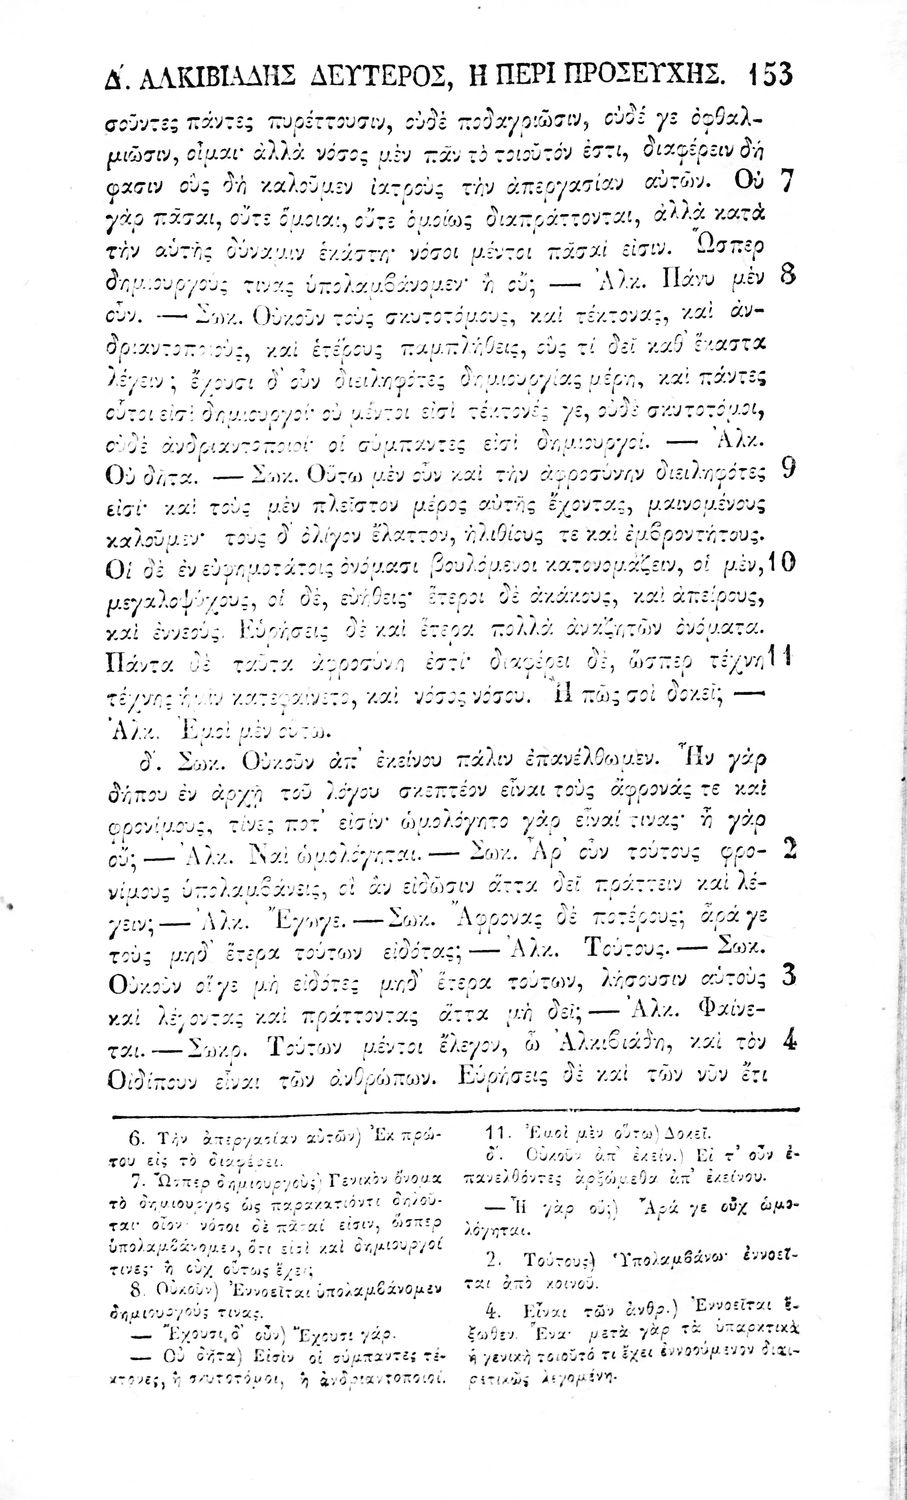 Δ΄. ΑΛΚΙΒΙΑΔΗΣ ΔΕΥΤΕΡΟΣ, Η ΠΕΡΙ ΠΡΟΣΕΥΧΗΣ. 153
σοῦντες πάντες πυρέττουσιν, οὐδὲ ποδαγριῶσιν, οὐδέ γε ὀφθαλ-
μιῶσιν, οἶμαι· ἀλλὰ νόσος μὲν πᾶν τὸ τοιοῦτόν ἐστι, διαφέρειν δή
φασιν οὓς δὴ καλοῦμεν ἰατροὺς τὴν ἀπεργασίαν αὐτῶν. Οὐ 7
γὰρ πᾶσαι, οὔτε ὅμοιαι, οὔτε ὁμοίως διαπράττονται, ἀλλὰ κατὰ
τὴν αὑτῆς δύναμιν ἑκάστη· νόσοι μέντοι πᾶσαί εἰσιν. Ὥσπερ
δημιουργούς τινας ὑπολαμβάνομεν· ἢ οὔ; — Ἀλκ. Πάνυ μὲν 8
οὖν. — Σωκ. Οὐκοῦν τοὺς σκυτοτόμους, καὶ τέκτονας, καὶ ἀν-
δριαντοποιούς, καὶ ἑτέρους παμπλήθεις, οὓς τί δεῖ καθ' ἕκαστα
λέγειν; ἔχουσι δ' οὖν διειληφότες δημιουργίας μέρη, καὶ πάντες
οὗτοι εἰσὶ δημιουργοί· οὐ μέντοι εἰσὶ τέκτονές γε, οὐδὲ σκυτοτόμοι,
οὐδὲ ἀνδριαντοποιοί· οἱ σύμπαντες εἰσὶ δημιουργοί. — Ἀλκ.
Οὐ δῆτα. — Σωκ. Οὕτω μὲν οὖν καὶ τὴν ἀφροσύνην διειληφότες 9
εἰσί· καὶ τοὺς μὲν πλεῖστον μέρος αὐτῆς ἔχοντας, μαινομένους
καλοῦμεν· τοὺς δ' ὀλίγον ἔλαττον, ἠλιθίους τε καὶ ἐμβροντήτους.
Οἱ δὲ ἐν εὐφημοτάτοις ὀνόμασι βουλόμενοι κατονομάζειν, οἱ μὲν, 10
μεγαλοψύχους, οἱ δὲ, εὐήθεις· ἕτεροι δὲ ἀκάκους, καὶ ἀπείρους,
καὶ ἐννεούς. Εὑρήσεις δὲ καὶ ἕτερα πολλὰ ἀναζητῶν ὀνόματα.
Πάντα δὲ ταῦτα ἀφροσύνη ἐστί· διαφέρει δὲ, ὥσπερ τέχνη 11
τέχνης ἡμῖν κατεφαίνετο, καὶ νόσος νόσου. Ἢ πῶς σοὶ δοκεῖ; —
Ἀλκ. Ἐμοὶ μὲν οὕτω.
δ΄. Σωκ. Οὐκοῦν ἀπ' ἐκείνου πάλιν ἐπανέλθωμεν. Ἦν γὰρ
δήπου ἐν ἀρχῇ τοῦ λόγου σκεπτέον εἶναι τοὺς ἄφρονάς τε καὶ
φρονίμους, τίνες ποτ' εἰσίν· ὡμολόγητο γὰρ εἶναί τινας· ἦ γὰρ
οὔ; — Ἀλκ. Ναὶ ὡμολόγηται. — Σωκ. Ἆρ' οὖν τούτους φρο- 2
νίμους ὑπολαμβάνεις, οἳ ἂν εἰδῶσιν ἅττα δεῖ πράττειν καὶ λέ-
γειν; — Ἀλκ. Ἔγωγε. — Σωκ. Ἄφρονας δὲ ποτέρους; ἆρά γε
τοὺς μηδ' ἕτερα τούτων εἰδότας; — Ἀλκ. Τούτους. — Σωκ.
Οὐκοῦν οἵ γε μὴ εἰδότες μηδ' ἕτερα τούτων, λήσουσιν αὑτοὺς 3
καὶ λέγοντας καὶ πράττοντας ἅττα μὴ δεῖ; — Ἀλκ. Φαίνε-
ται. — Σωκρ. Τούτων μέντοι ἔλεγον, ὦ Ἀλκιβιάδη, καὶ τὸν 4
Οἰδίπουν εἶναι τῶν ἀνθρώπων. Εὑρήσεις δὲ καὶ τῶν νῦν ἔτι
6. Τὴν ἀπεργασίαν αὐτῶν) Ἐκ πρώ-
του εἰς τὸ διαφέρει.
7. Ὥσπερ δημιουργούς) Γενικὸν ὄνομα
τὸ δημιουργὸς ὡς παρακατιόντι δηλοῦ-
ται· οἷον· νόσοι δὲ πᾶσαί εἰσιν, ὥσπερ
ὑπολαμβάνομεν, ὅτι εἰσὶ καὶ δημιουργοί
τινες· ἢ οὐχ οὕτως ἔχει;
8. Οὐκοῦν) Ἐννοεῖται ὑπολαμβάνομεν
δημιουργούς τινας.
— Ἔχουσι, δ' οὖν) Ἔχουσι γάρ.
— Οὐ δῆτα) Εἰσὶν οἱ σύμπαντες τέ-
κτονες, ἢ σκυτοτόμοι, ἢ ἀνδριαντοποιοί.
11. Ἐμοὶ μὲν οὕτω) Δοκεῖ.
δ΄. Οὐκοῦν ἀπ' ἐκείν.) Εἰ τ' οὖν ἐ-
πανελθόντες ἀρξώμεθα ἀπ' ἐκείνου.
— Ἢ γὰρ οὔ;) Ἆρά γε οὐχ ὡμο-
λόγηται.
2. Τούτους) Ὑπολαμβάνω· ἐννοεῖ-
ται ἀπὸ κοινοῦ.
4. Εἶναι τῶν ἀνθρ.) Ἐννοεῖται ἔ-
ξωθεν. Ἕνα· μετὰ γὰρ τὰ ὑπαρκτικὰ
ἡ γενικὴ τοιοῦτό τι ἔχει ἐννοούμενον διαι-
ρετικῶς λεγομένη.